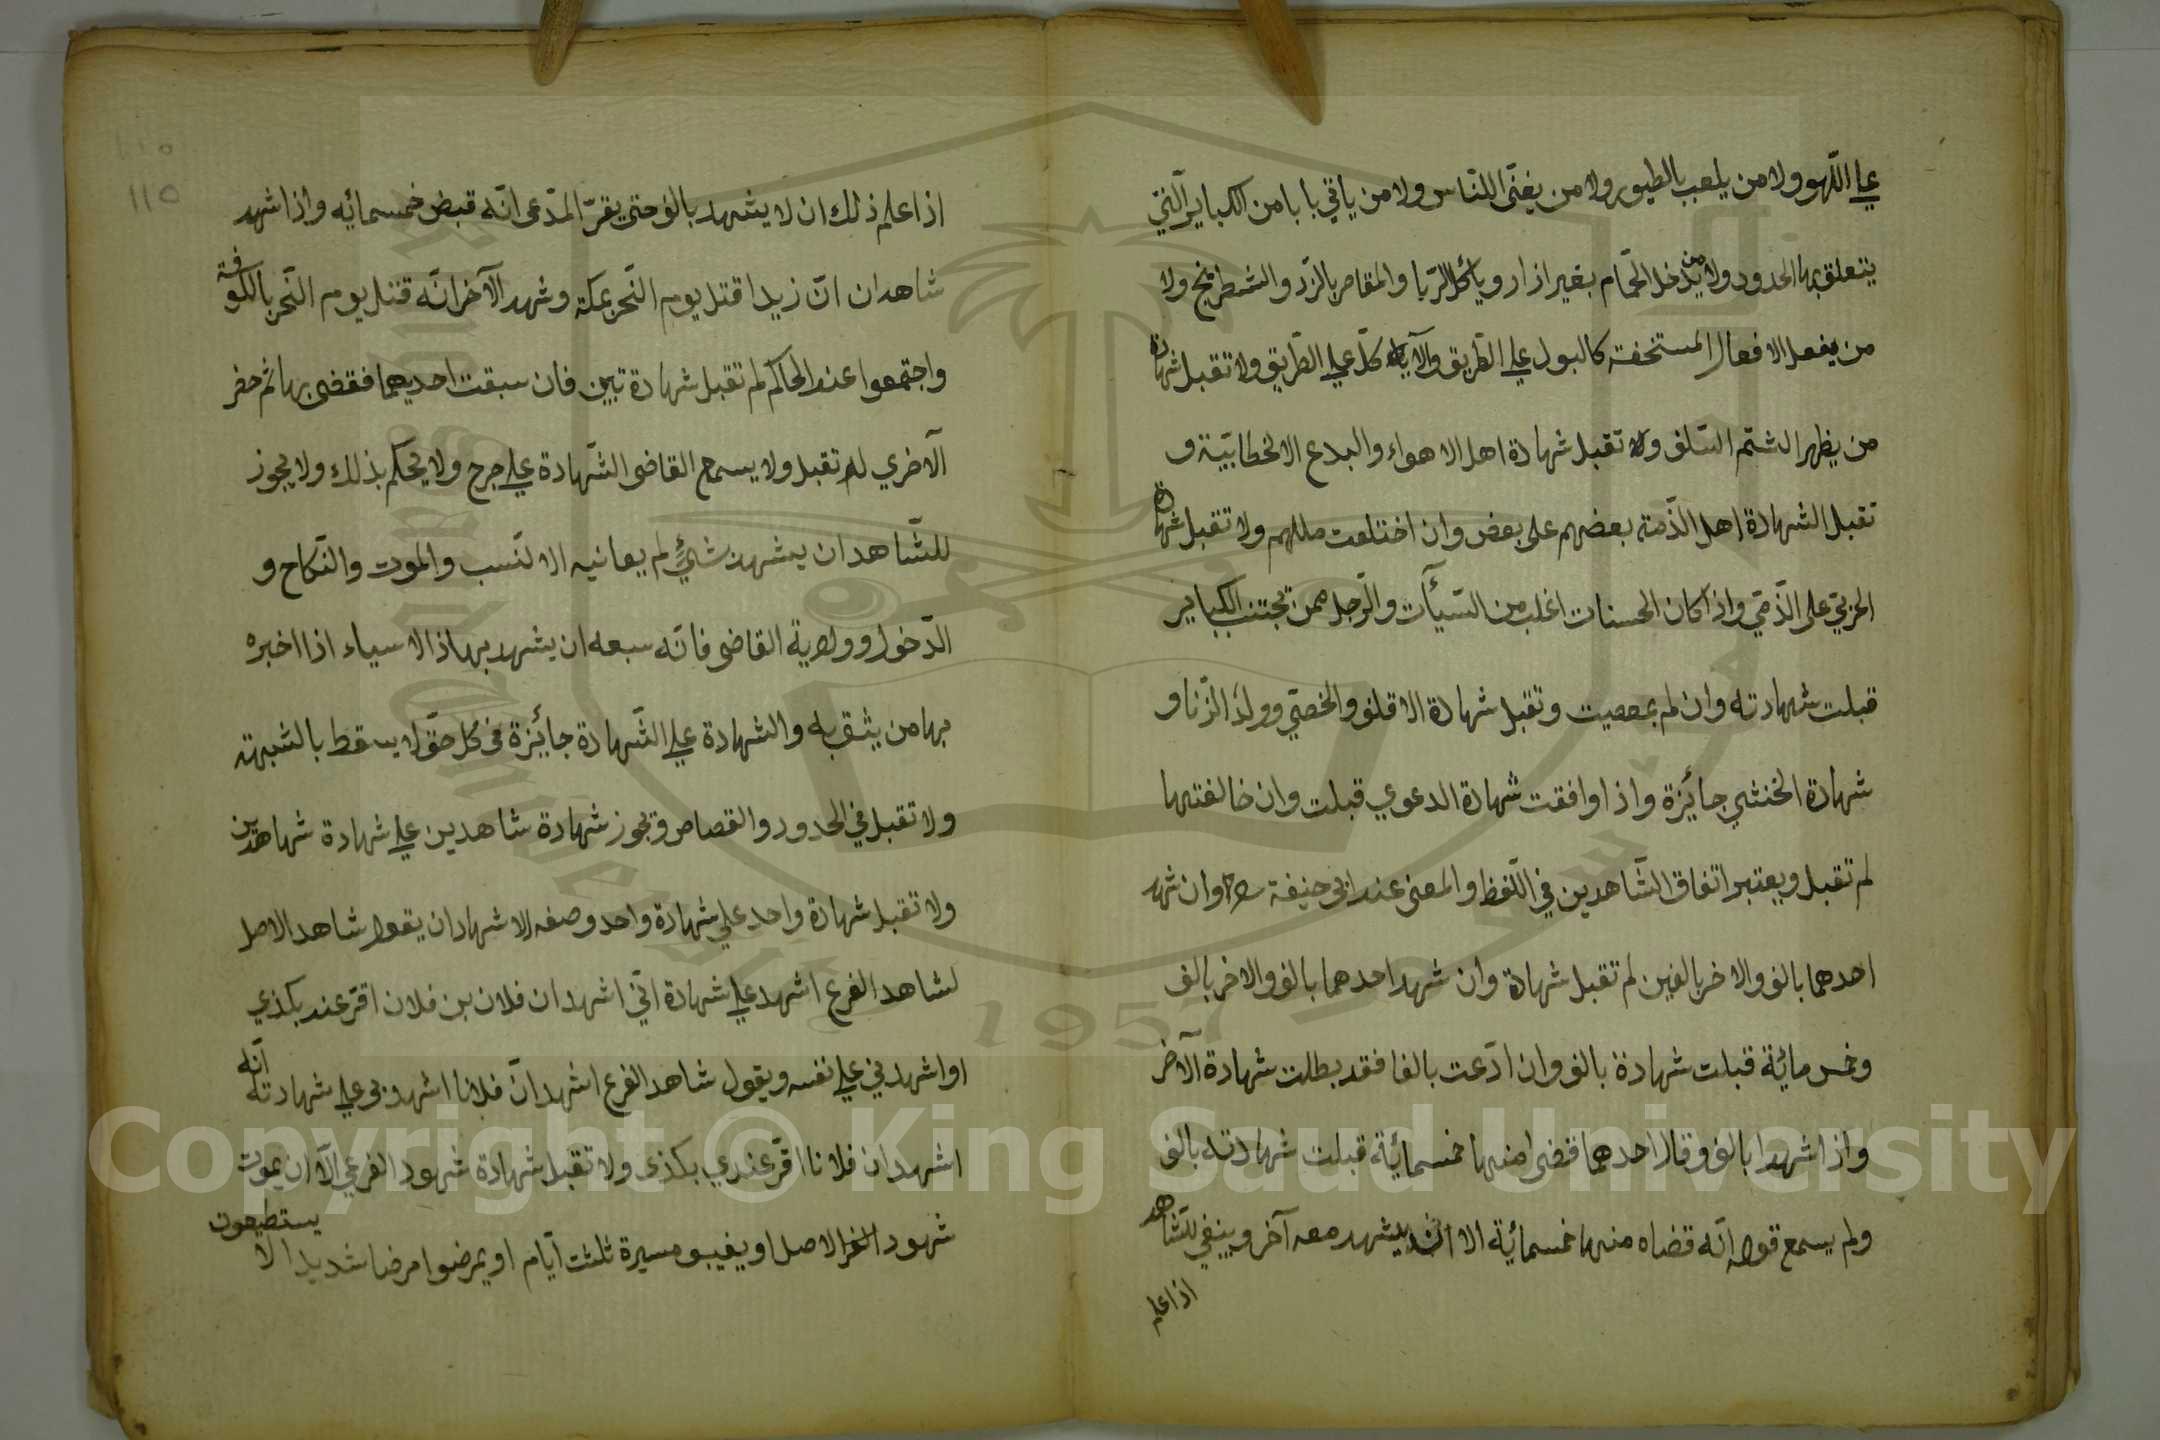 علي اللّهو ولا من يلعب بالطيور ولا من يغنّي اللنّاس ولا من ياتي بابا من الكباير الّتي
يتعلق بها الحدود ولا من يدخل الحّمام بغير ازار وياكل الرّبا والمقامر بالنّرد والشطرنج ولا
من يفعل الافعال المستخفة كالبول علي الطّريق والاكل علي الطّريق ولا تقبل شهادة
من يظهر الشتم السّلف ولا تقبل شهادة اهل الاهواء والبدع الا الخطابيّة و
تقبل الشهادة اهل الذّمة بعضهم على بعض وان اختلفت مللهم ولا تقبل شهادة
الحربيّ على الذّمّي واذا كان الحسنات اغلب من السّيأت والرّجل ممن تجتنب الكباير
قبلت شهادته وان لم بمعصيت وتقبل شهادة الاقلف والخصّي وولد الزّنا و
شهادة الخنثي جائزة واذا وافقت شهادة الدعوي قبلت وان خالفتها
لم تقبل ويعتبر اتفاق الشّاهدين في اللّفظ والمعنى عند ابى حنيفة رح وان شهد
احدهما بالف والاخر بالفين لم تقبل شهادة وان شهد احدهما بالف والاخر بالف
وخمس مائة قبلت شهادة بالف وان ادّعت بالفا فقد بطلت شهادة الآخر
واذا شهدا بالف وقال احدهما قضى منها خمسمائة قبلت شهادته بالف
ولم يسمع قوله انّه قضاه منها خمسمائة الا ان يشهد معه آخر وينبغي للشّاهد
اذا علم
١١٥
اذا علم ذلك ان لا يشهد بالف حتى يقرّ المدّعى انّه قبض خمسمائه واذا شهد
شاهدان انّ زيدا قتل يوم النّحر بمكة وشهد الآخر انّه قتل يوم النّحر بالكوفة
واجتمعوا عند الحاكم لم تقبل شهادة تبين فان سبقت احديهما فقضى بها ثم حضر
الآخري لم تقبل ولا يسمع القاضى الشّهادة علي جرح ولا يحكم بذلك ولا يجوز
للشّاهد ان يشهد شئ لم يعانيه الا النّسب والموت والنّكاح و
الدّخول وولاية القاضى فانّه سبعه ان يشهد بهاذ الاسياء اذا اخبره
بها من يثق به والشهادة علي الشّهادة جائزة في كل حقّ لا يسقط بالشبهة
ولا تقبل في الحدود والقصاص وتجوز شهادة شاهدين علي شهادة شهاهدين
ولا تقبل شهادة واحد علي شهادة واحد وصفه الاشهاد ان يقول شاهد الاصل
لشاهد الفرع اشهد علي شهادة انّي اشهد ان فلان بن فلان اقرّ عند بكذي
او اشهدني علي نفسه ويقول شاهد الفرع اشهد انّ فلانا اشهدبى علي شهادته انّه
اشهد ان فلانا اقرّ عندي بكذى ولا تقبل شهادة شهود الفرعي الّا ان يموت
شهود الاصل او يغيبو مسيرة ثلثت ايّام او يمرضوا مرضا شديد الا يستطيعون
Copyright © King Saud University
1957